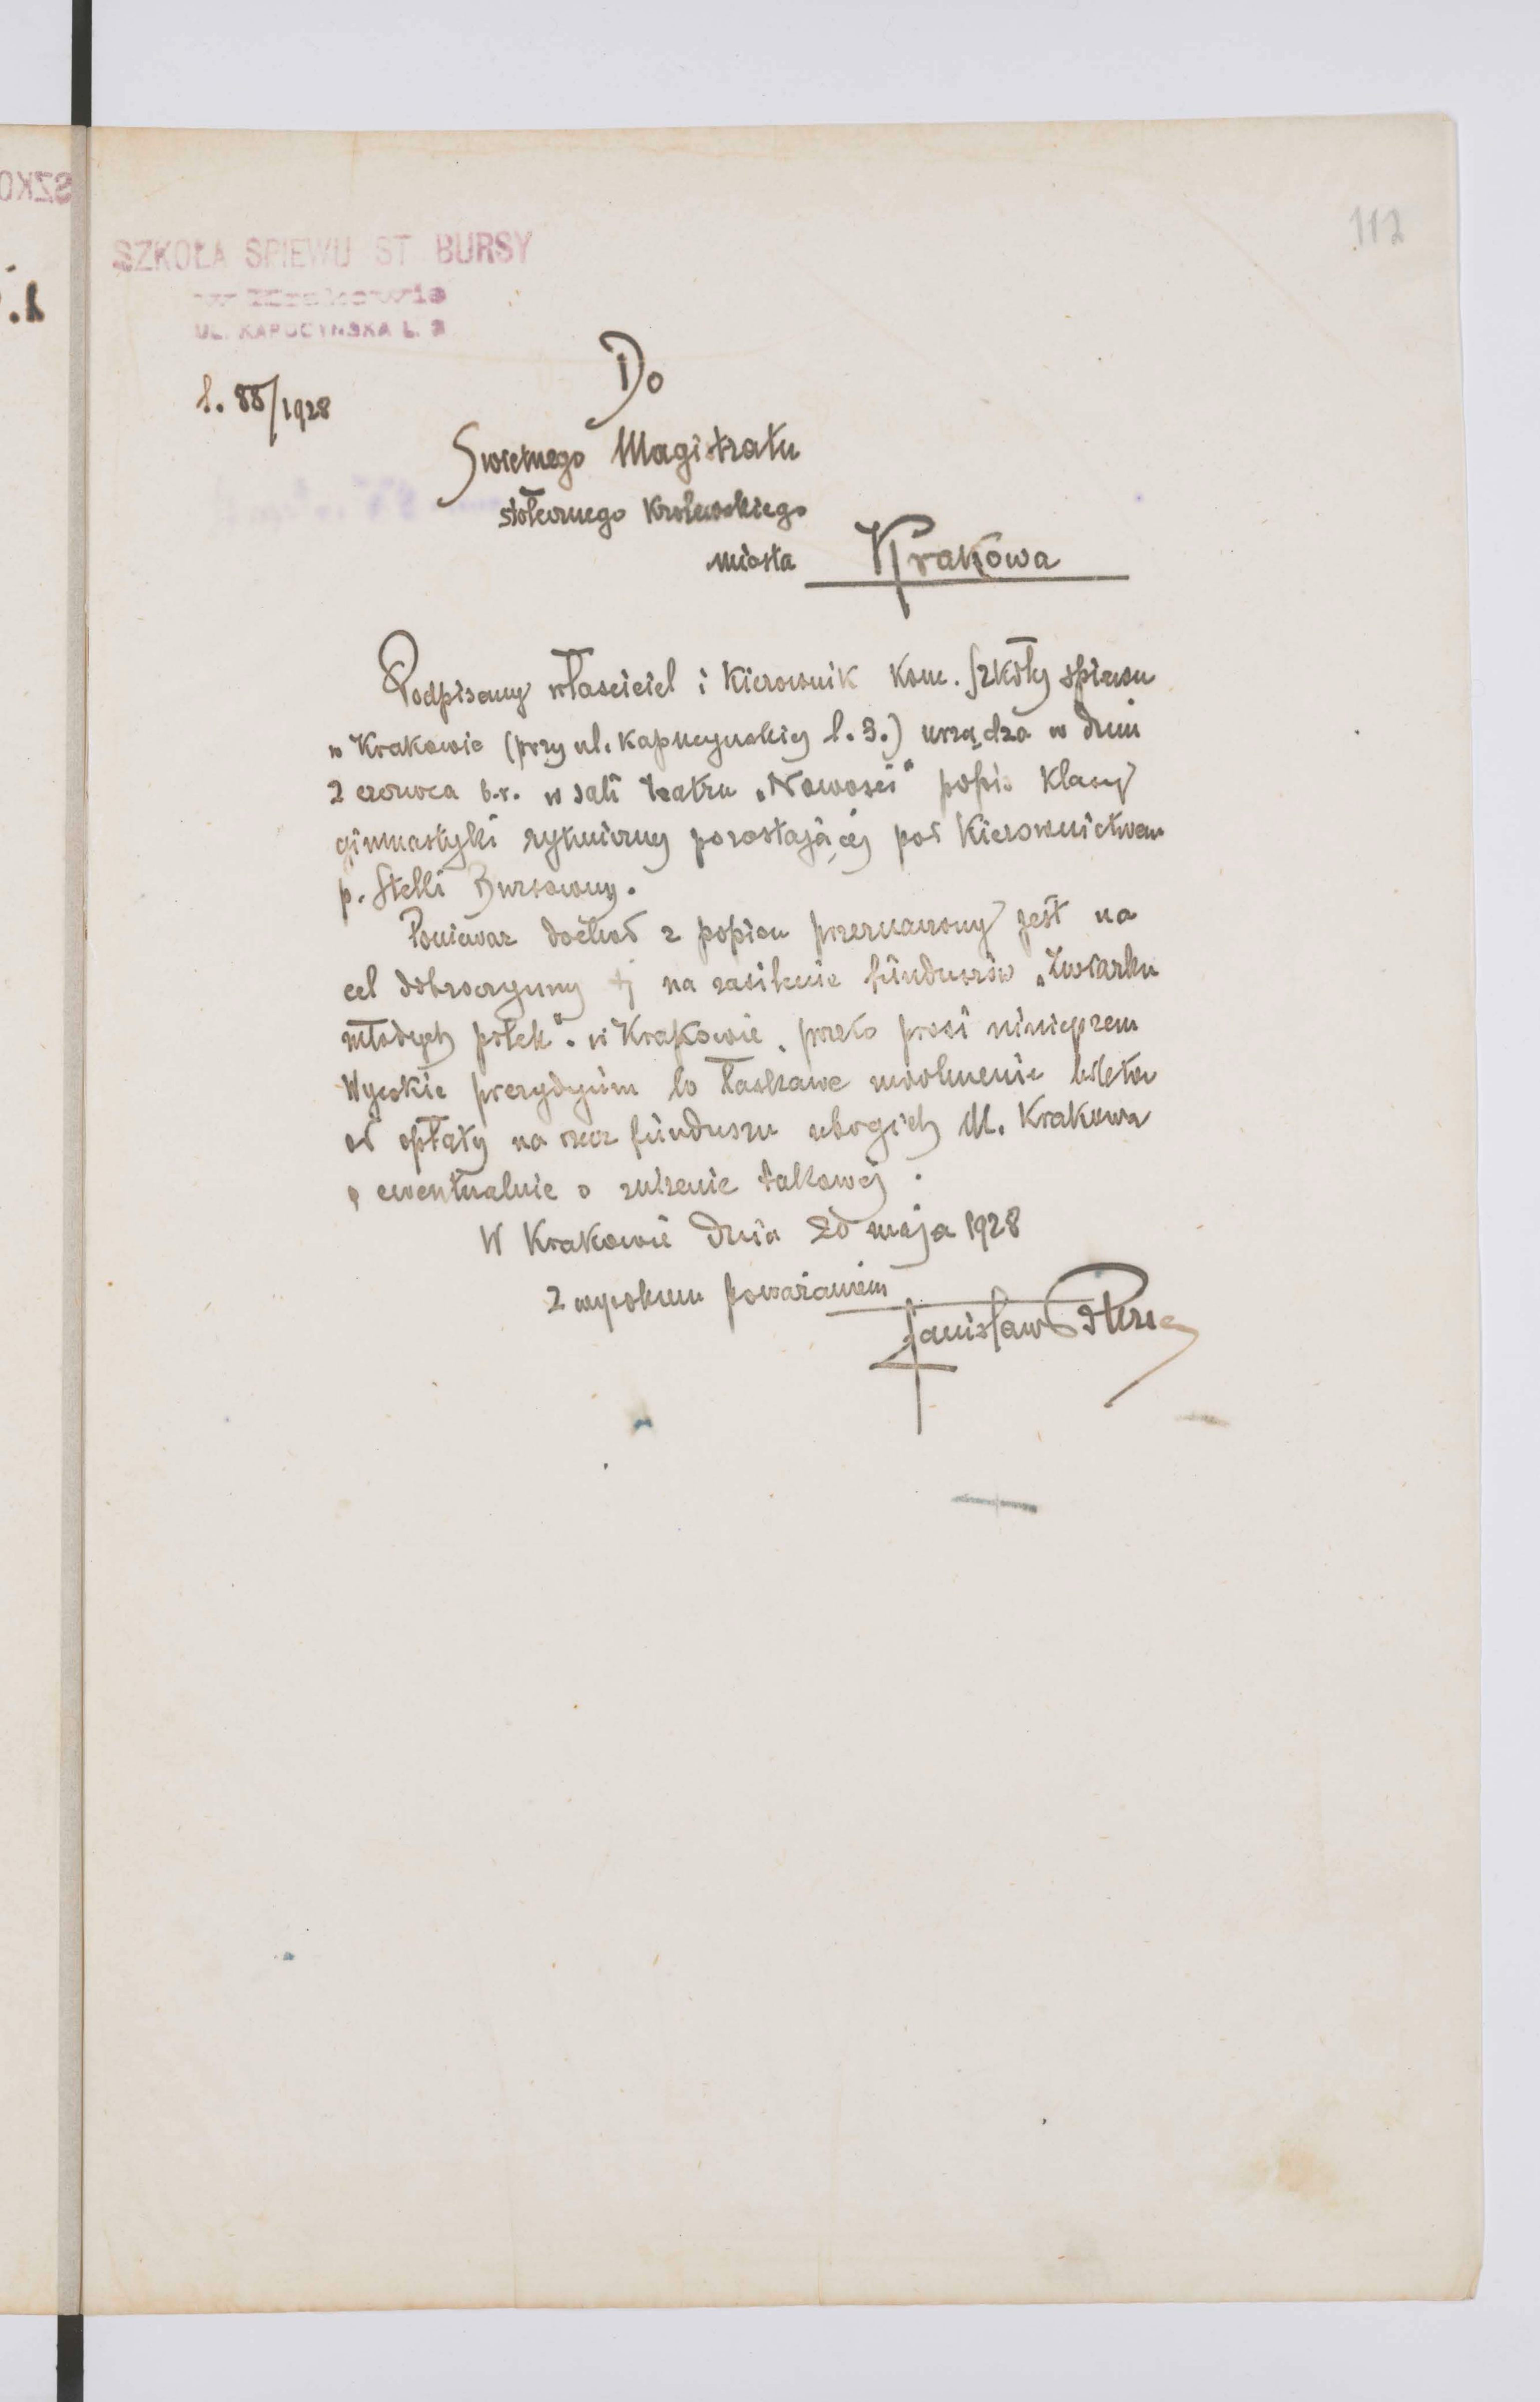 112
SZKOŁA ŚPIEWU ST. BURSY
w Krakowie
UL. KAPUCYŃSKA L. 3
l. 88/1928
Do
Świetnego Magistratu
stołecznego Królewskiego
miasta Krakowa
Podpisany właściciel i Kierownik Konc. Szkoły śpiewu
w Krakowie (przy ul. Kapucyńskiej l. 3.) urządza w dniu
2 czerwca b.r. w sali teatru „Nowości" popis Klasy
gimnastyki rytmicznej pozostającej pod Kierownictwem
p. Stelli Bursówny.
Ponieważ dochód z popisu przeznaczony jest na
cel dobroczynny tj na zasilenie funduszów „Związku
młodych polek". w Krakowie, przeto prosi niniejszem
Wysokie prezydyum o łaskawe uwolnienie biletów
od opłaty na rzecz funduszu ubogich M. Krakowa
ewentualnie o zniżenie takowej.
W Krakowie dnia 20 maja 1928
Z wysokiem poważaniem
Stanisław Bursa